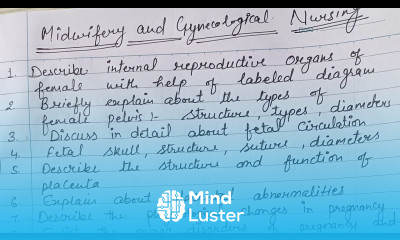 Midwifery and Gynecological Nursing
1. Describe internal reproductive organs of
female with help of labeled diagram
2 Briefly explain about the types of
female pelvis :- structure, types, diameters
3. Discuss in detail about fetal circulation
4. fetal skull, structure, suture, diameters
5 Describe the structure and function of
placenta
6 Explain about abnormalities
7. Describe the changes in pregnancy
disorders in pregnancy and
Mind
Luster